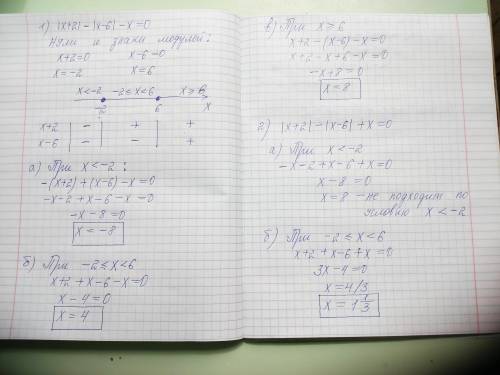 1) |x+2|-|x-6|-x=0
Нули и знаки модулей:
x+2=0 x-6=0
x=-2 x=6
x<-2 -2≤x<6 x≥6
-2 6 x
x+2 | - | + | +
x-6 | - | - | +
а) При x<-2:
-(x+2)+(x-6)-x=0
-x-2+x-6-x=0
-x-8=0
x=-8
б) При -2≤x<6
x+2+x-6-x=0
x-4=0
x=4
в) При x≥6
x+2-(x-6)-x=0
x+2-x+6-x=0
-x+8=0
x=8
2) |x+2|-|x-6|+x=0
а) При x<-2
-x-2+x-6+x=0
x-8=0
x=8 - не подходит по
условию x<-2
б) При -2≤x<6
x+2+x-6+x=0
3x-4=0
x=4/3
x=1 1/3